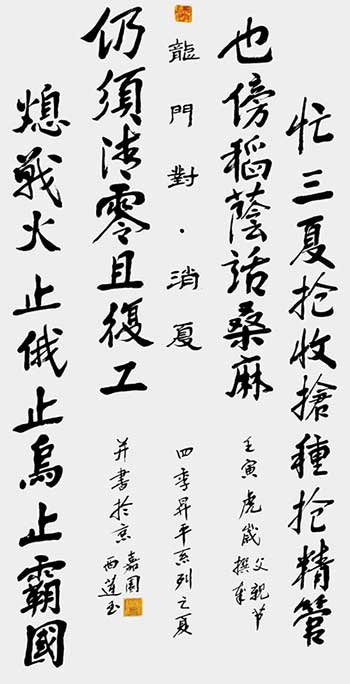 忙三夏抢收搶種抢精管
也傍稻蔭話桑麻
壬寅虎歲父親节撰
龍門對·消夏
四季昇平系列之夏
熄戰火止俄止烏止霸國
仍須清零且復工
并書於京西蓮玉嘉園